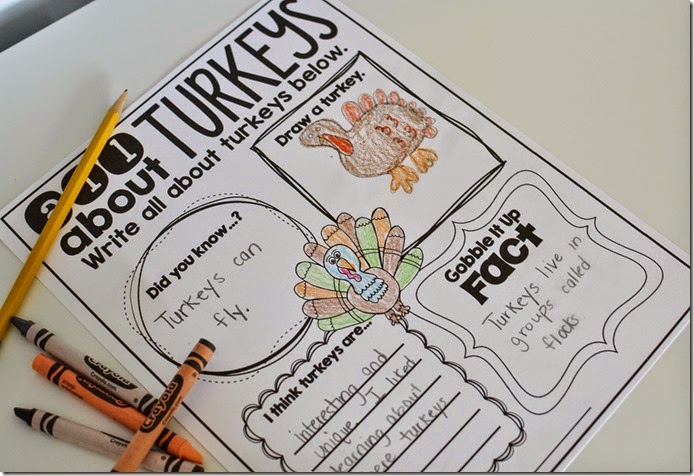 All
about TURKEYS
Write all about turkeys below.
Draw a turkey.
Did you know...?
Turkeys can
fly.
Gobble It Up
FACT
Turkeys live in
groups called
flocks.
I think turkeys are...
interesting and
unique. I liked
learning about
turkeys
Crayola
Crayola
Crayola